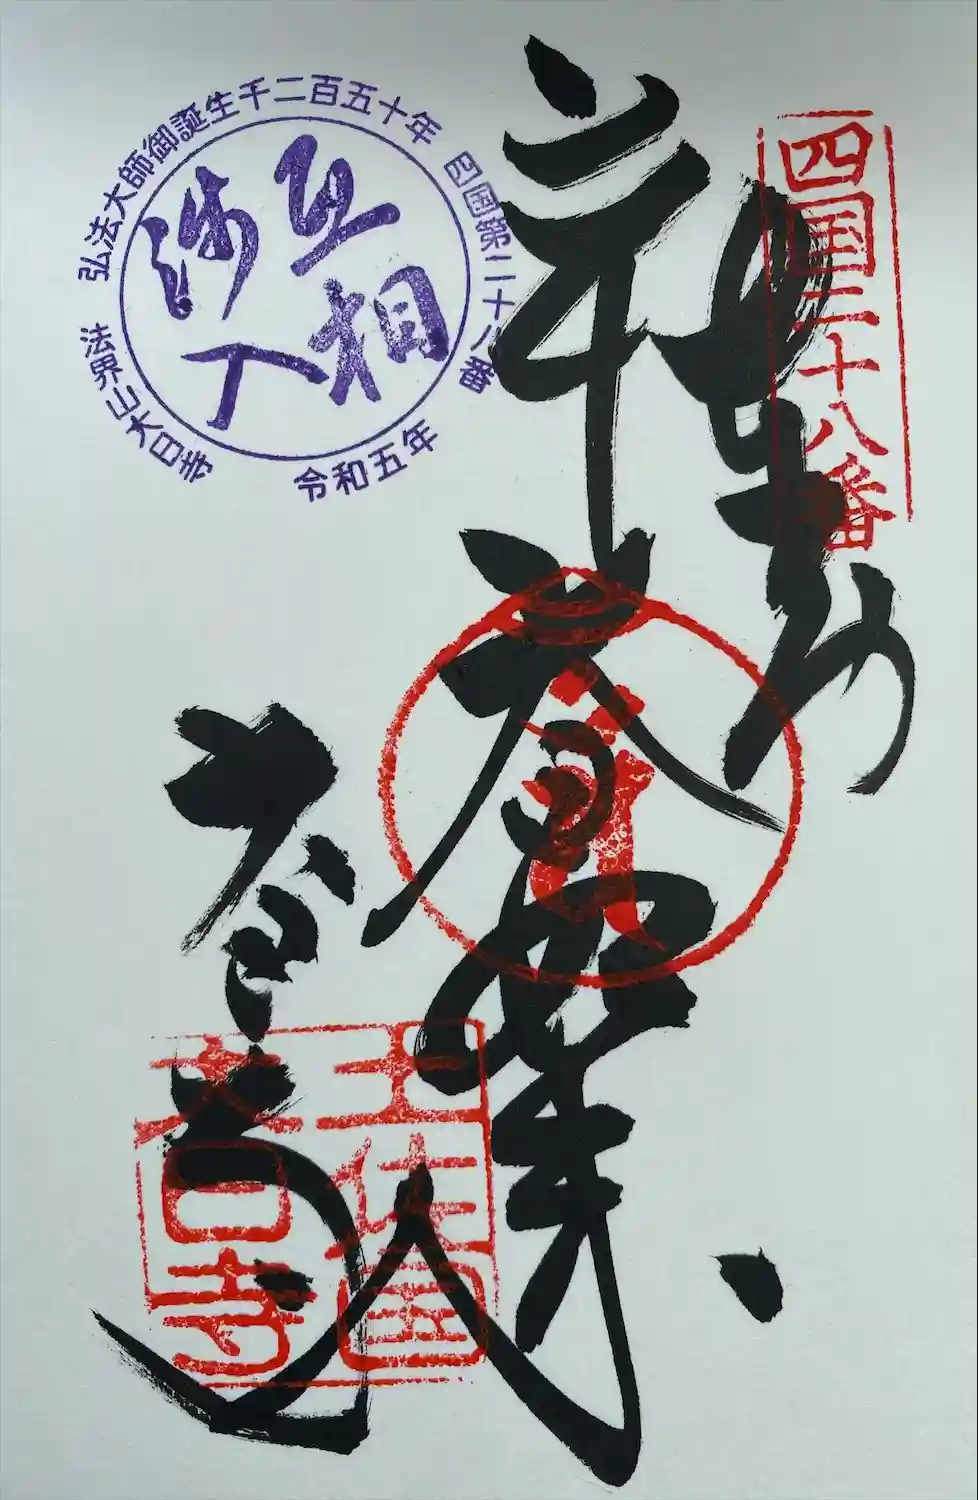 四国二十八番
大日如来
大日寺
土佐國
大日寺
弘法大師御誕生千二百五十年
四国第二十八番
令和五年
法界山大日寺
互相
渉入